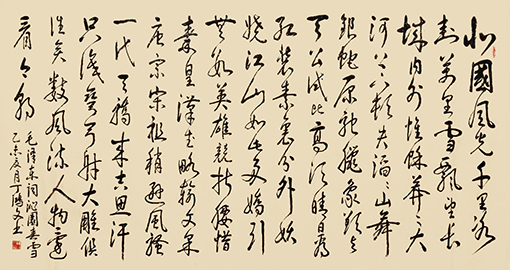 北國風光千里冰
封萬里雪飄望長
城内外惟餘莽々大
河上下頓失滔々山舞
銀蛇原馳蠟象欲與
天公試比高須晴日看
紅裝素裹分外妖
嬈江山如此多嬌引
無數英雄競折腰惜
秦皇漢武略輸文采
唐宗宋祖稍遜風騷
一代天驕成吉思汗
只識彎弓射大雕俱
往矣數風流人物還
看今朝
毛澤東詞沁園春雪
乙未夏月丁